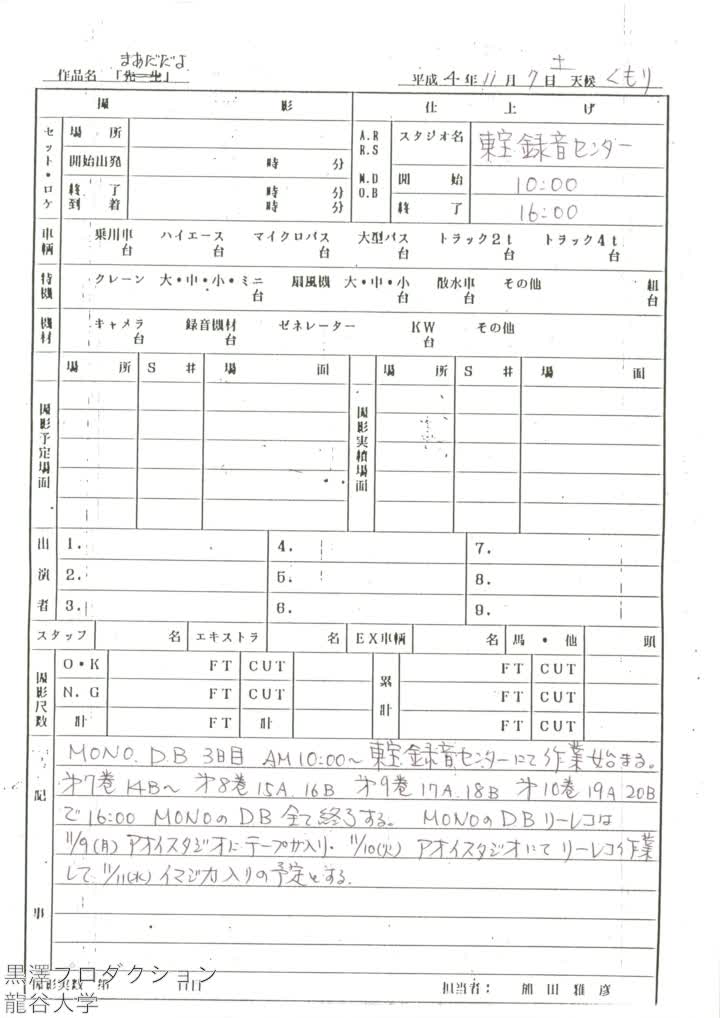 まあだだよ
作品名 「先生」 平成 4 年 11 月 7 日 土 天候 くもり
撮 影 仕 上 げ
セット・ロケ 場 所 A.R R.S M.D O.B スタジオ名 東宝録音センター
開始出発 時 分 開 始 10:00
終了到着 時 分 時 分 終 了 16:00
車輌 乗用車 台 ハイエース 台 マイクロバス 台 大型バス 台 トラック2t 台 トラック4t 台
特機 クレーン 大・中・小・ミニ 台 扇風機 大・中・小 台 散水車 台 その他 組 台
機材 キャメラ 台 録音機材 台 ゼネレーター KW 台 その他
撮影予定場面 場 所 S # 場 面 撮影実績場面 場 所 S # 場 面
出演者 1. 4. 7.
2. 5. 8.
3. 6. 9.
スタッフ 名 エキストラ 名 EX車輌 名 馬・他 頭
撮影尺数 O・K FT CUT 累計 FT CUT
N.G FT CUT FT CUT
計 FT 計 FT CUT
記事
MONO. D.B 3日目 AM10:00〜 東宝録音センターにて作業始まる。
第7巻 14B〜 第8巻 15A.16B 第9巻 17A.18B 第10巻 19A 20B
で16:00 MONOのDB 全て終了する。 MONOのDBリーレコは
11/9(月) アオイスタジオにテープが入り・11/10(火) アオイスタジオにてリーレコ作業
して 11/11(水) イマジカ入りの予定とする.
撮影実数 第 日目 担当者:
黒澤プロダクション
龍谷大学